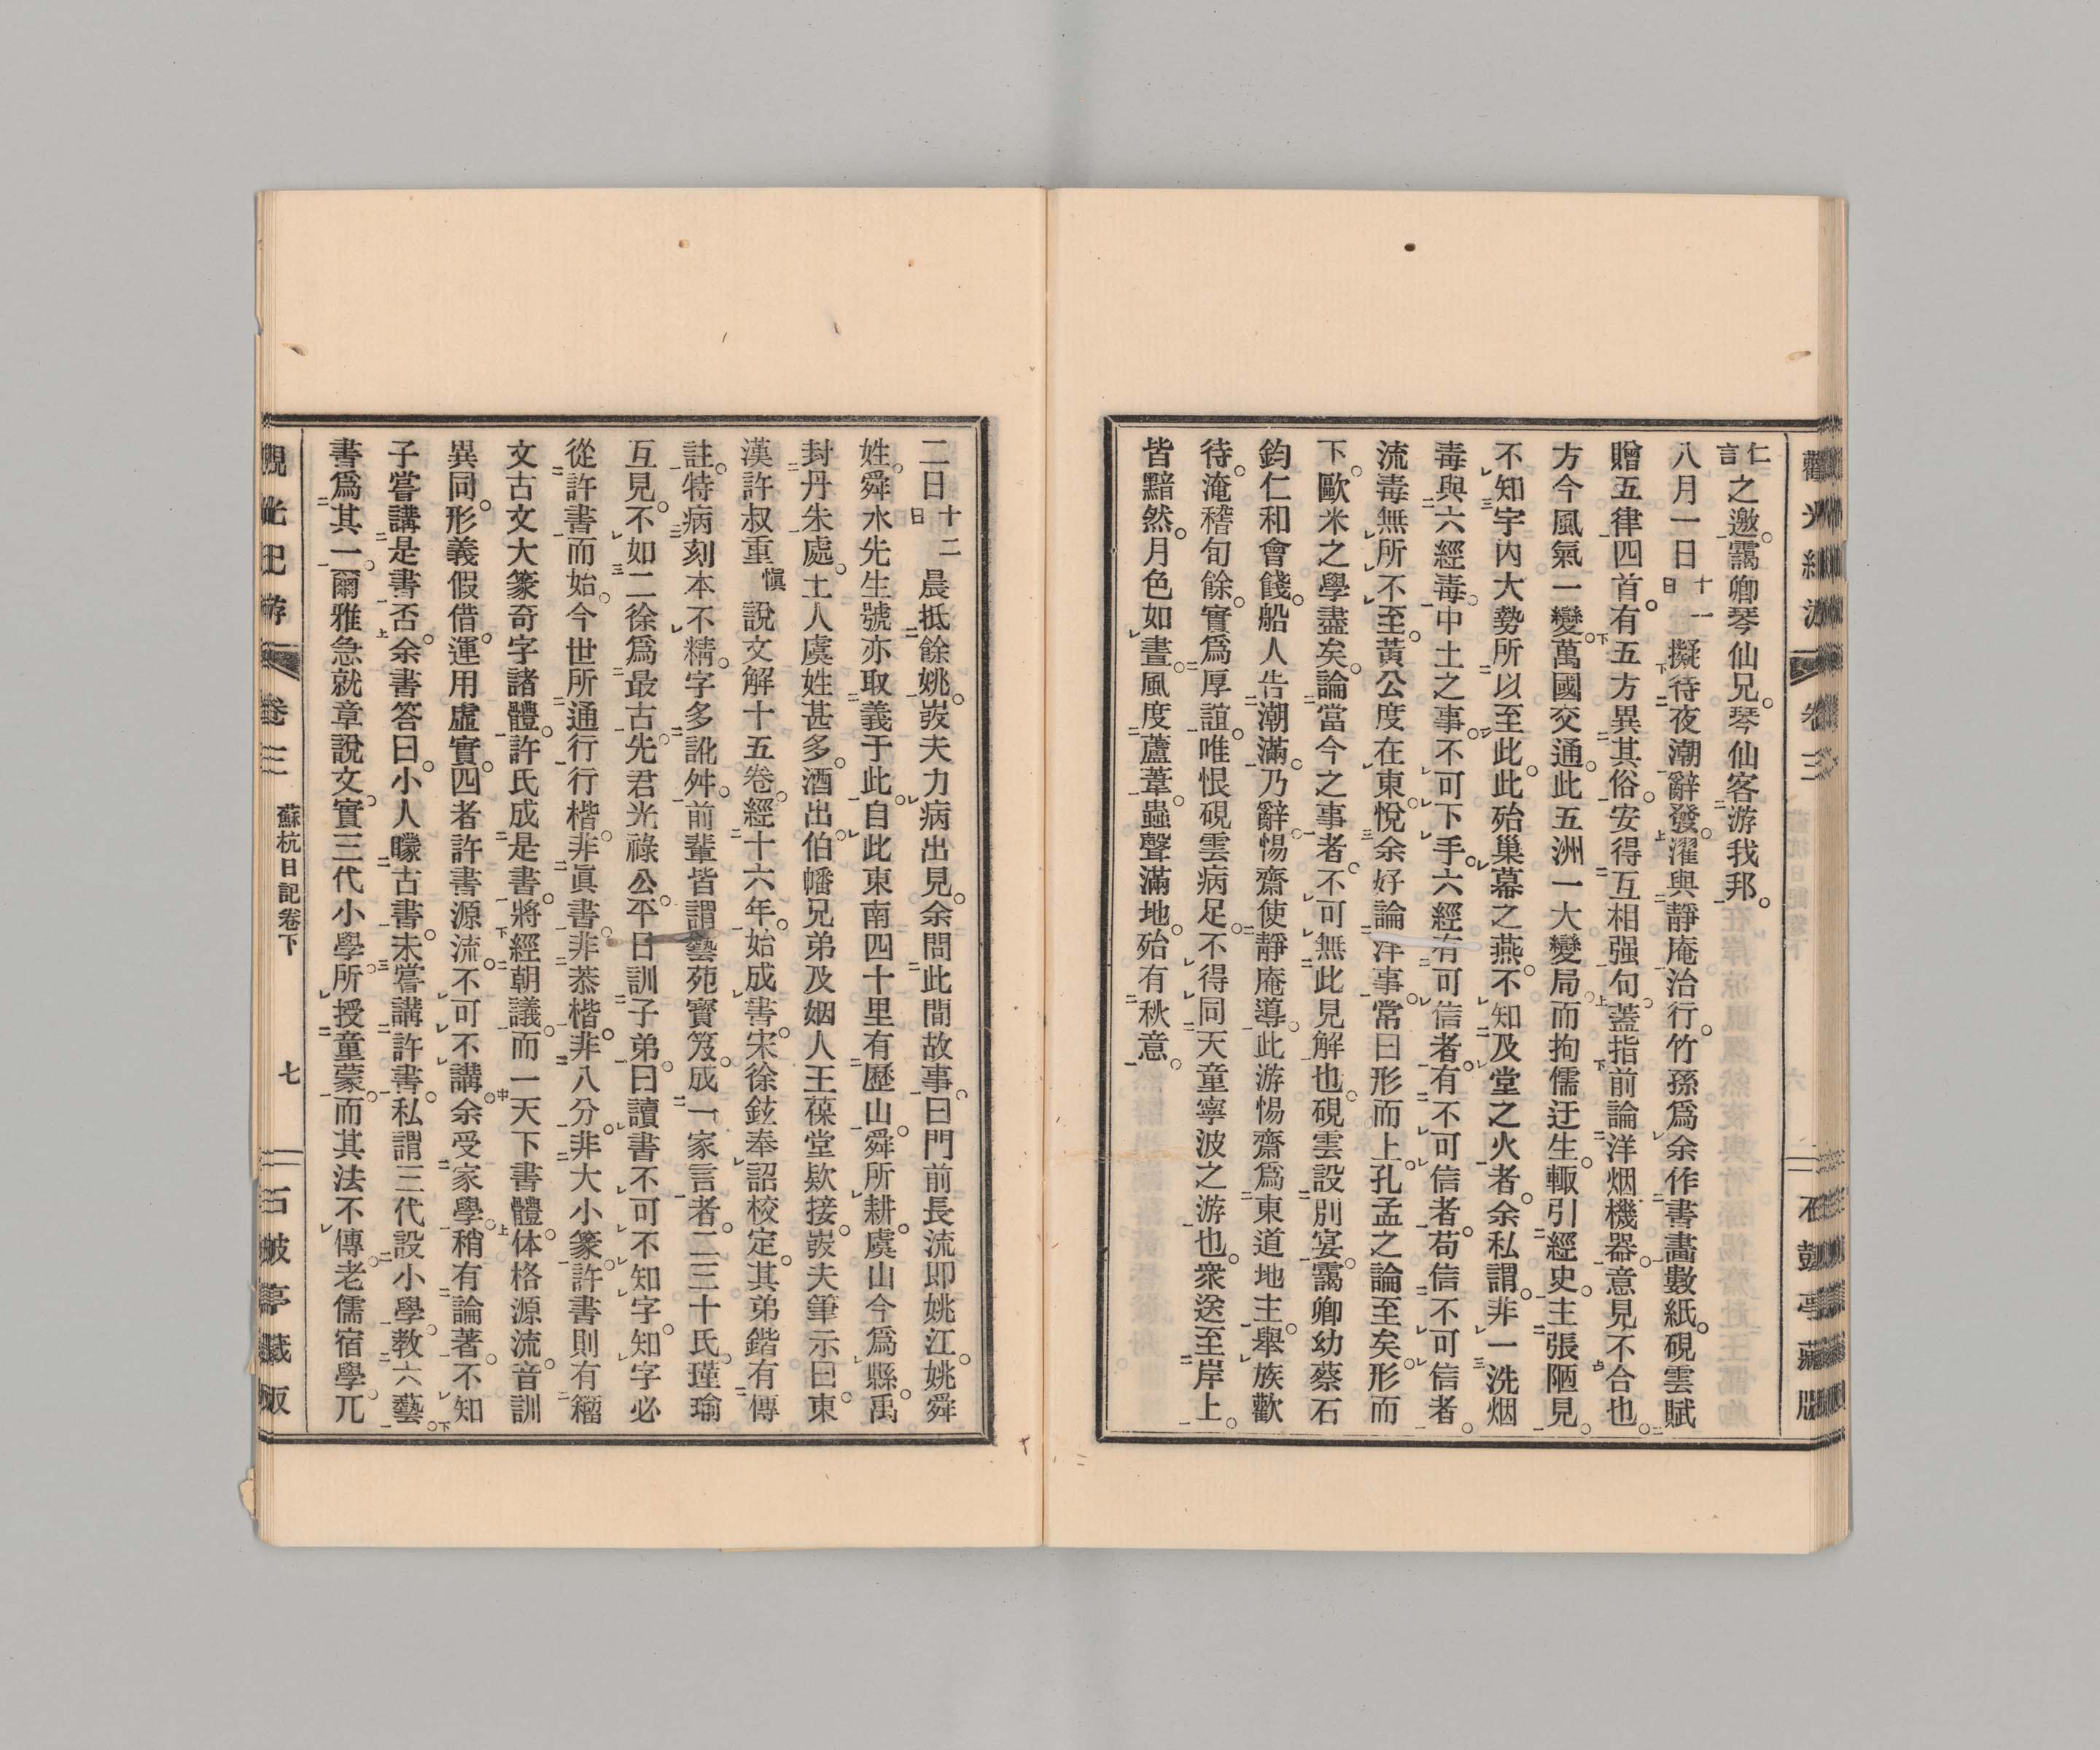 仁言之邀。靄卿琴仙兄。琴仙客游我邦。
八月一日十一日擬待夜潮辭發。濯與靜庵治行。竹孫爲余作書畵數紙。硯雲賦
贈五律四首。有五方異其俗。安得互相强句。蓋指前論洋烟機器。意見不合也。
方今風氣一變。萬國交通。此五洲一大變局。而拘儒迂生。輙引經史。主張陋見。
不知宇內大勢所以至此。此殆巢幕之燕。不知及堂之火者。余私謂。非一洗烟
毒與六經毒。中土之事。不可下手。六經有可信者。有不可信者。苟信不可信者。
流毒無所不至。黃公度在東。悅余好論洋事。常曰形而上。孔孟之論至矣。形而
下。歐米之學盡矣。論當今之事者。不可無此見解也。硯雲設別宴。靄卿幼蔡石
鈞仁和會餞。船人告潮滿。乃辭。惕齋使靜庵導。此游惕齋爲東道地主。舉族歡
待。淹稽旬餘。實爲厚誼。唯恨硯雲病足。不得同天童寧波之游也。衆送至岸上。
皆黯然。月色如晝。風度蘆葦。蟲聲滿地。殆有秋意。
二日十二日晨抵餘姚。㷀夫力病出見。余問此間故事。曰門前長流即姚江。姚舜
姓。舜水先生號亦取義于此。自此東南四十里有歷山。舜所耕。虞山今爲縣。禹
封丹朱處。土人虞姓甚多。酒出。伯幡兄弟及姻人王葆堂欵接。㷀夫筆示曰。東
漢許叔重愼說文解十五卷。經十六年。始成書。宋徐鉉奉詔校定。其弟鍇有傳
註。特病刻本不精。字多訛舛。前輩皆謂藝苑寶笈。成一家言者。二三十氏。瑾瑜
互見。不如二徐爲最古。先君光祿公。平日訓子弟。曰讀書不可不知字。知字必
從許書而始。今世所通行行楷。非眞書。非恭楷。非八分。非大小篆。許書則有籀
文古文大篆奇字諸體。許氏成是書。將經朝議。而一天下書體。体格源流。音訓
異同。形義假借。運用虛實。四者許書源流。不可不講。余受家學。稍有論著。不知
子嘗講是書否。余書答曰。小人矇古書。未嘗講許書。私謂三代設小學。敎六藝。
書爲其一。爾雅急就章說文。實三代小學。所授童蒙。而其法不傳。老儒宿學。兀
觀光紀游
卷三
蘇杭日記卷下
七
石鼓亭藏版